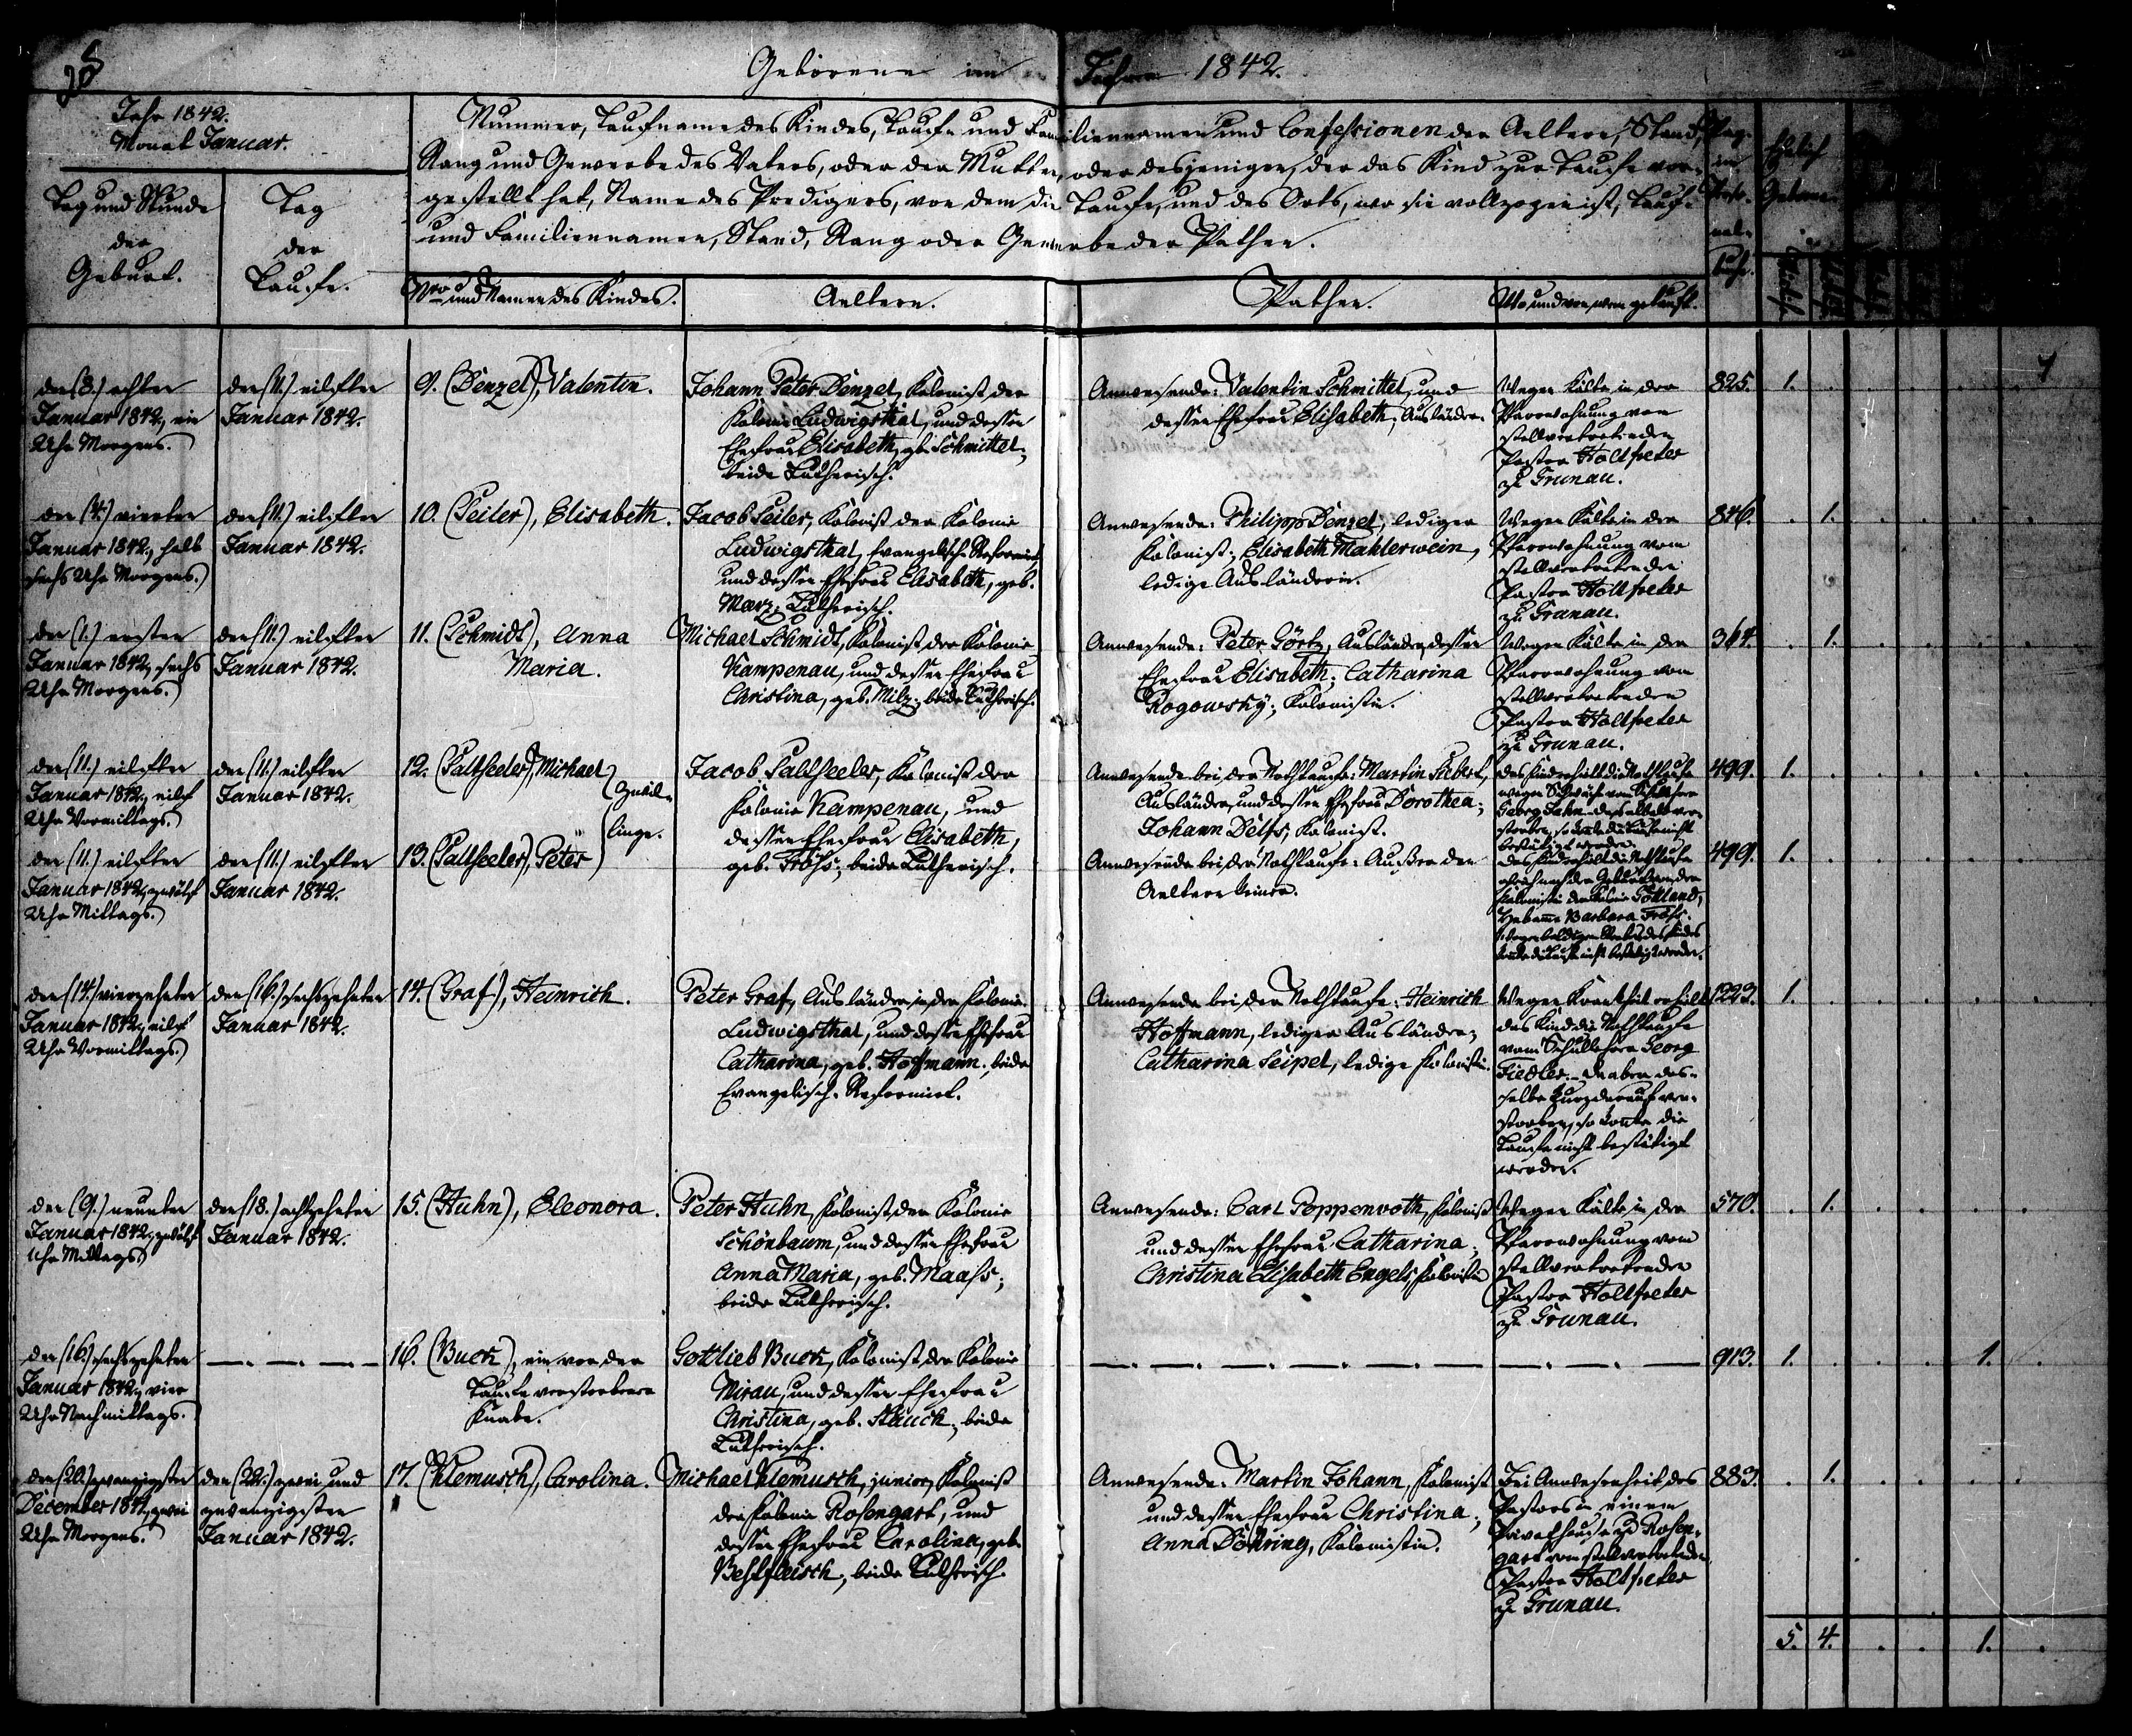 Geborene im Jahre 1842.
Jahr 1842.
Monat Januar.
Nummer, Taufname des Kindes, Taufe und Familiennamen und Confessionen der Aeltern, Stand,
Rang und Gewerbe des Vaters, oder der Mutter, oder desjenigen, der das Kind zur Taufe vor-
gestellt hat, Name des Predigers, von dem die Taufe, und des Orts, wo sie vollzogen ist, Tauf-
und Familiennamen, Stand, Rang oder Gewerbe der Pathen.
Pag.
im
Perso-
nal-
buche.
Ehelich
Geborene
Tag und Stunde
der
Geburt.
Tag
der
Taufe.
Nro und Namen des Kindes.
Aeltern.
Pathen.
Wo und von wem getauft.
den (8.) achten
Januar 1842, ein
Uhr Morgens.
den (11.) eilften
Januar 1842.
9. (Denzel), Valentin.
Johann Peter Denzel, Kolonist der
Kolonie Ludwigsthal, und dessen
Ehefrau Elisabeth, gb. Schmittel;
beide Lutherisch.
Anwesende: Valentin Schmittel, und
dessen Ehefrau Elisabeth; Ausländer.
Wegen Kälte in der
Pfarrwohnung vom
stellvertretenden
Pastor Holtfreter
zu Grunau.
825. 1.
den (4.) vierten
Januar 1842, halb
sechs Uhr Morgens.)
den (11.) eilften
Januar 1842.
10. (Seiler), Elisabeth.
Jacob Seiler, Kolonist der Kolonie
Ludwigsthal, Evangelisch-Reformirt,
und dessen Ehefrau Elisabeth, geb.
Marz; Lutherisch.
Anwesende: Philipp Denzel, lediger
Kolonist; Elisabeth Mahlerwein,
ledige Ausländerin.
Wegen Kälte in der
Pfarrwohnung vom
stellvertretenden
Pastor Holtfreter
zu Grunau.
846. 1.
den (1.) ersten
Januar 1842, sechs
Uhr Morgens.)
den (11.) eilften
Januar 1842.
11. (Schmidt), Anna
Maria.
Michael Schmidt, Kolonist der Kolonie
Kampenau, und dessen Ehefrau
Christina, geb. Milz; beide Lutherisch.
Anwesende: Peter Görtz, Ausländer, dessen
Ehefrau Elisabeth; Catharina
Rogowsky; Kolonistin.
Wegen Kälte in der
Pfarrwohnung vom
stellvertretenden
Pastor Holtfreter
zu Grunau.
364. 1.
den (11.) eilften
Januar 1842, eilf
Uhr Vormittags.)
den (11.) eilften
Januar 1842.
12. (Saltseeler), Michael
Zwil-
linge.
Jacob Saltseeler, Kolonist der
Kolonie Kampenau, und
dessen Ehefrau Elisabeth,
geb. Fröhs; beide Lutherisch.
Anwesende bei der Nothtaufe: Martin Siebert,
Ausländer, und dessen Ehefrau Dorothea;
Johann Delfs, Kolonist.
das Kind erhielt die Nothtaufe
wegen Schwäche vom Schullehrer
Georg Jahn
499. 1.
den (11.) eilften
Januar 1842, zwölf
Uhr Mittags.)
den (11.) eilften
Januar 1842.
13. (Saltseeler), Peter
Anwesende bei der Nothtaufe: Außer den
Aeltern keiner.
das Kind erhielt die Nothtaufe
gleich nach der Geburt von der
Kolonistin der Kolonie Göttland,
Hebamme Barbara Fröhs.
499. 1.
den (14.) vierzehnten
Januar 1842, eilf
Uhr Vormittags.)
den (16.) sechszehnten
Januar 1842.
14. (Graf), Heinrich.
Peter Graf, Ausländer, in der Kolonie
Ludwigsthal, und dessen Ehefrau
Catharina, geb. Hoffmann; beide
Evangelisch-Reformirt.
Anwesende bei der Nothtaufe: Heinrich
Hoffmann, lediger Ausländer;
Catharina Seipel, ledige Kolonistin.
Wegen Krankheit erhielt
das Kind die Nothtaufe
vom Schullehrer Georg
Fiedler. da aber das-
selbe kurz darauf ver-
storben, so konnte die
Taufe nicht bestätigt
werden.
1223. 1.
den (9.) neunten
Januar 1842, zwölf
Uhr Mittags)
den (18.) achtzehnten
Januar 1842.
15. (Huhn), Eleonora.
Peter Huhn, Kolonist der Kolonie
Schönbaum, und dessen Ehefrau
Anna Maria, geb. Maass;
beide Lutherisch.
Anwesende: Carl Poppenroth, Kolonist
und dessen Ehefrau Catharina;
Christina Elisabeth Engels, Kolonistin
Wegen Kälte in der
Pfarrwohnung vom
stellvertretenden
Pastor Holtfreter
zu Grunau.
570. 1.
den (16.) sechszehnten
Januar 1842, vier
Uhr Nachmittags.
16. (Buck), ein vor der
Taufe verstorbener
Knabe.
Gottlieb Buck, Kolonist der Kolonie
Mirau, und dessen Ehefrau
Christina, geb. Stauch; beide
Lutherisch.
913. 1. 1.
den (20.) zwanzigsten
December 1841, zwei
Uhr Morgens.
den (22.) zwei und
zwanzigsten
Januar 1842.
17. (Klemusch), Carolina.
Michael Klemusch, junior, Kolonist
der Kolonie Rosengart, und
dessen Ehefrau Carolina, geb.
Behlfleisch; beide Lutherisch.
Anwesende: Martin Johann, Kolonist
und dessen Ehefrau Christina;
Anna Döhring, Kolonistin.
Bei Anwesenheit des
Pastors in einem
Privathause zu Rosen-
gart vom stellvertretenden
Pastor Holtfreter
zu Grunau.
883. 1.
5. 4. 1.